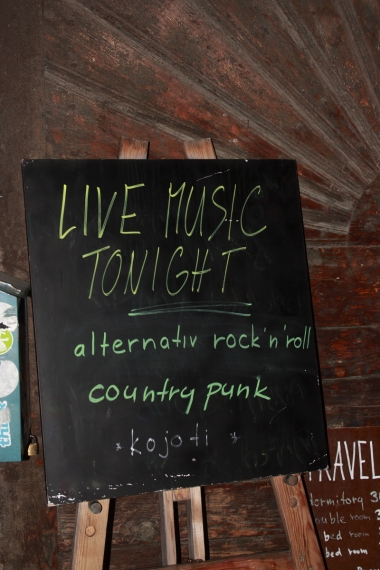 LIVE MUSIC
TONIGHT
alternativ rock'n'roll
country punk
* kojoti *
RAVEL
dormitory
ouble room
bed room
bed room